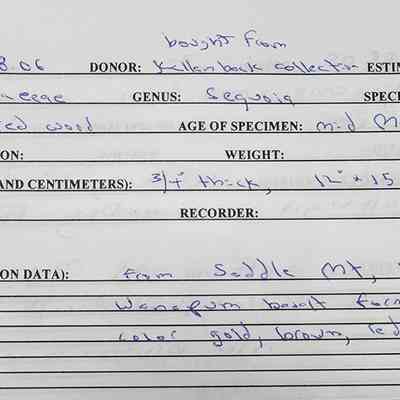 bought from
8.06 DONOR: Kellenback collection ESTIM
aceae GENUS: Sequoia SPECI
ed wood AGE OF SPECIMEN: mid M
ON: WEIGHT:
AND CENTIMETERS): 3/4" thick, 12" x 15
RECORDER:
ON DATA): From Saddle Mt,
Wanapum basalt Form
color gold, brown, red